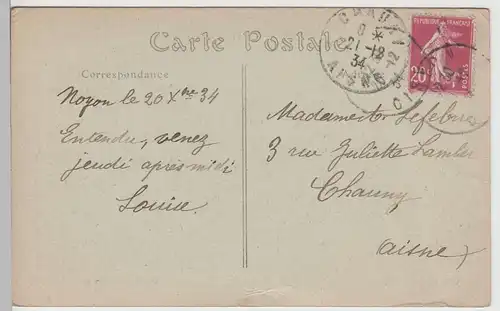 Carte Postale
Correspondance
Noyon le 20 Xbre 34
Entendu, venez
jeudi après-midi
Louise
CHAUNY
21-12
34
AISNE
REPUBLIQUE FRANÇAISE
20
POSTES
Lefebvre
3 rue Juliette Lamber
Chauny
(Aisne)